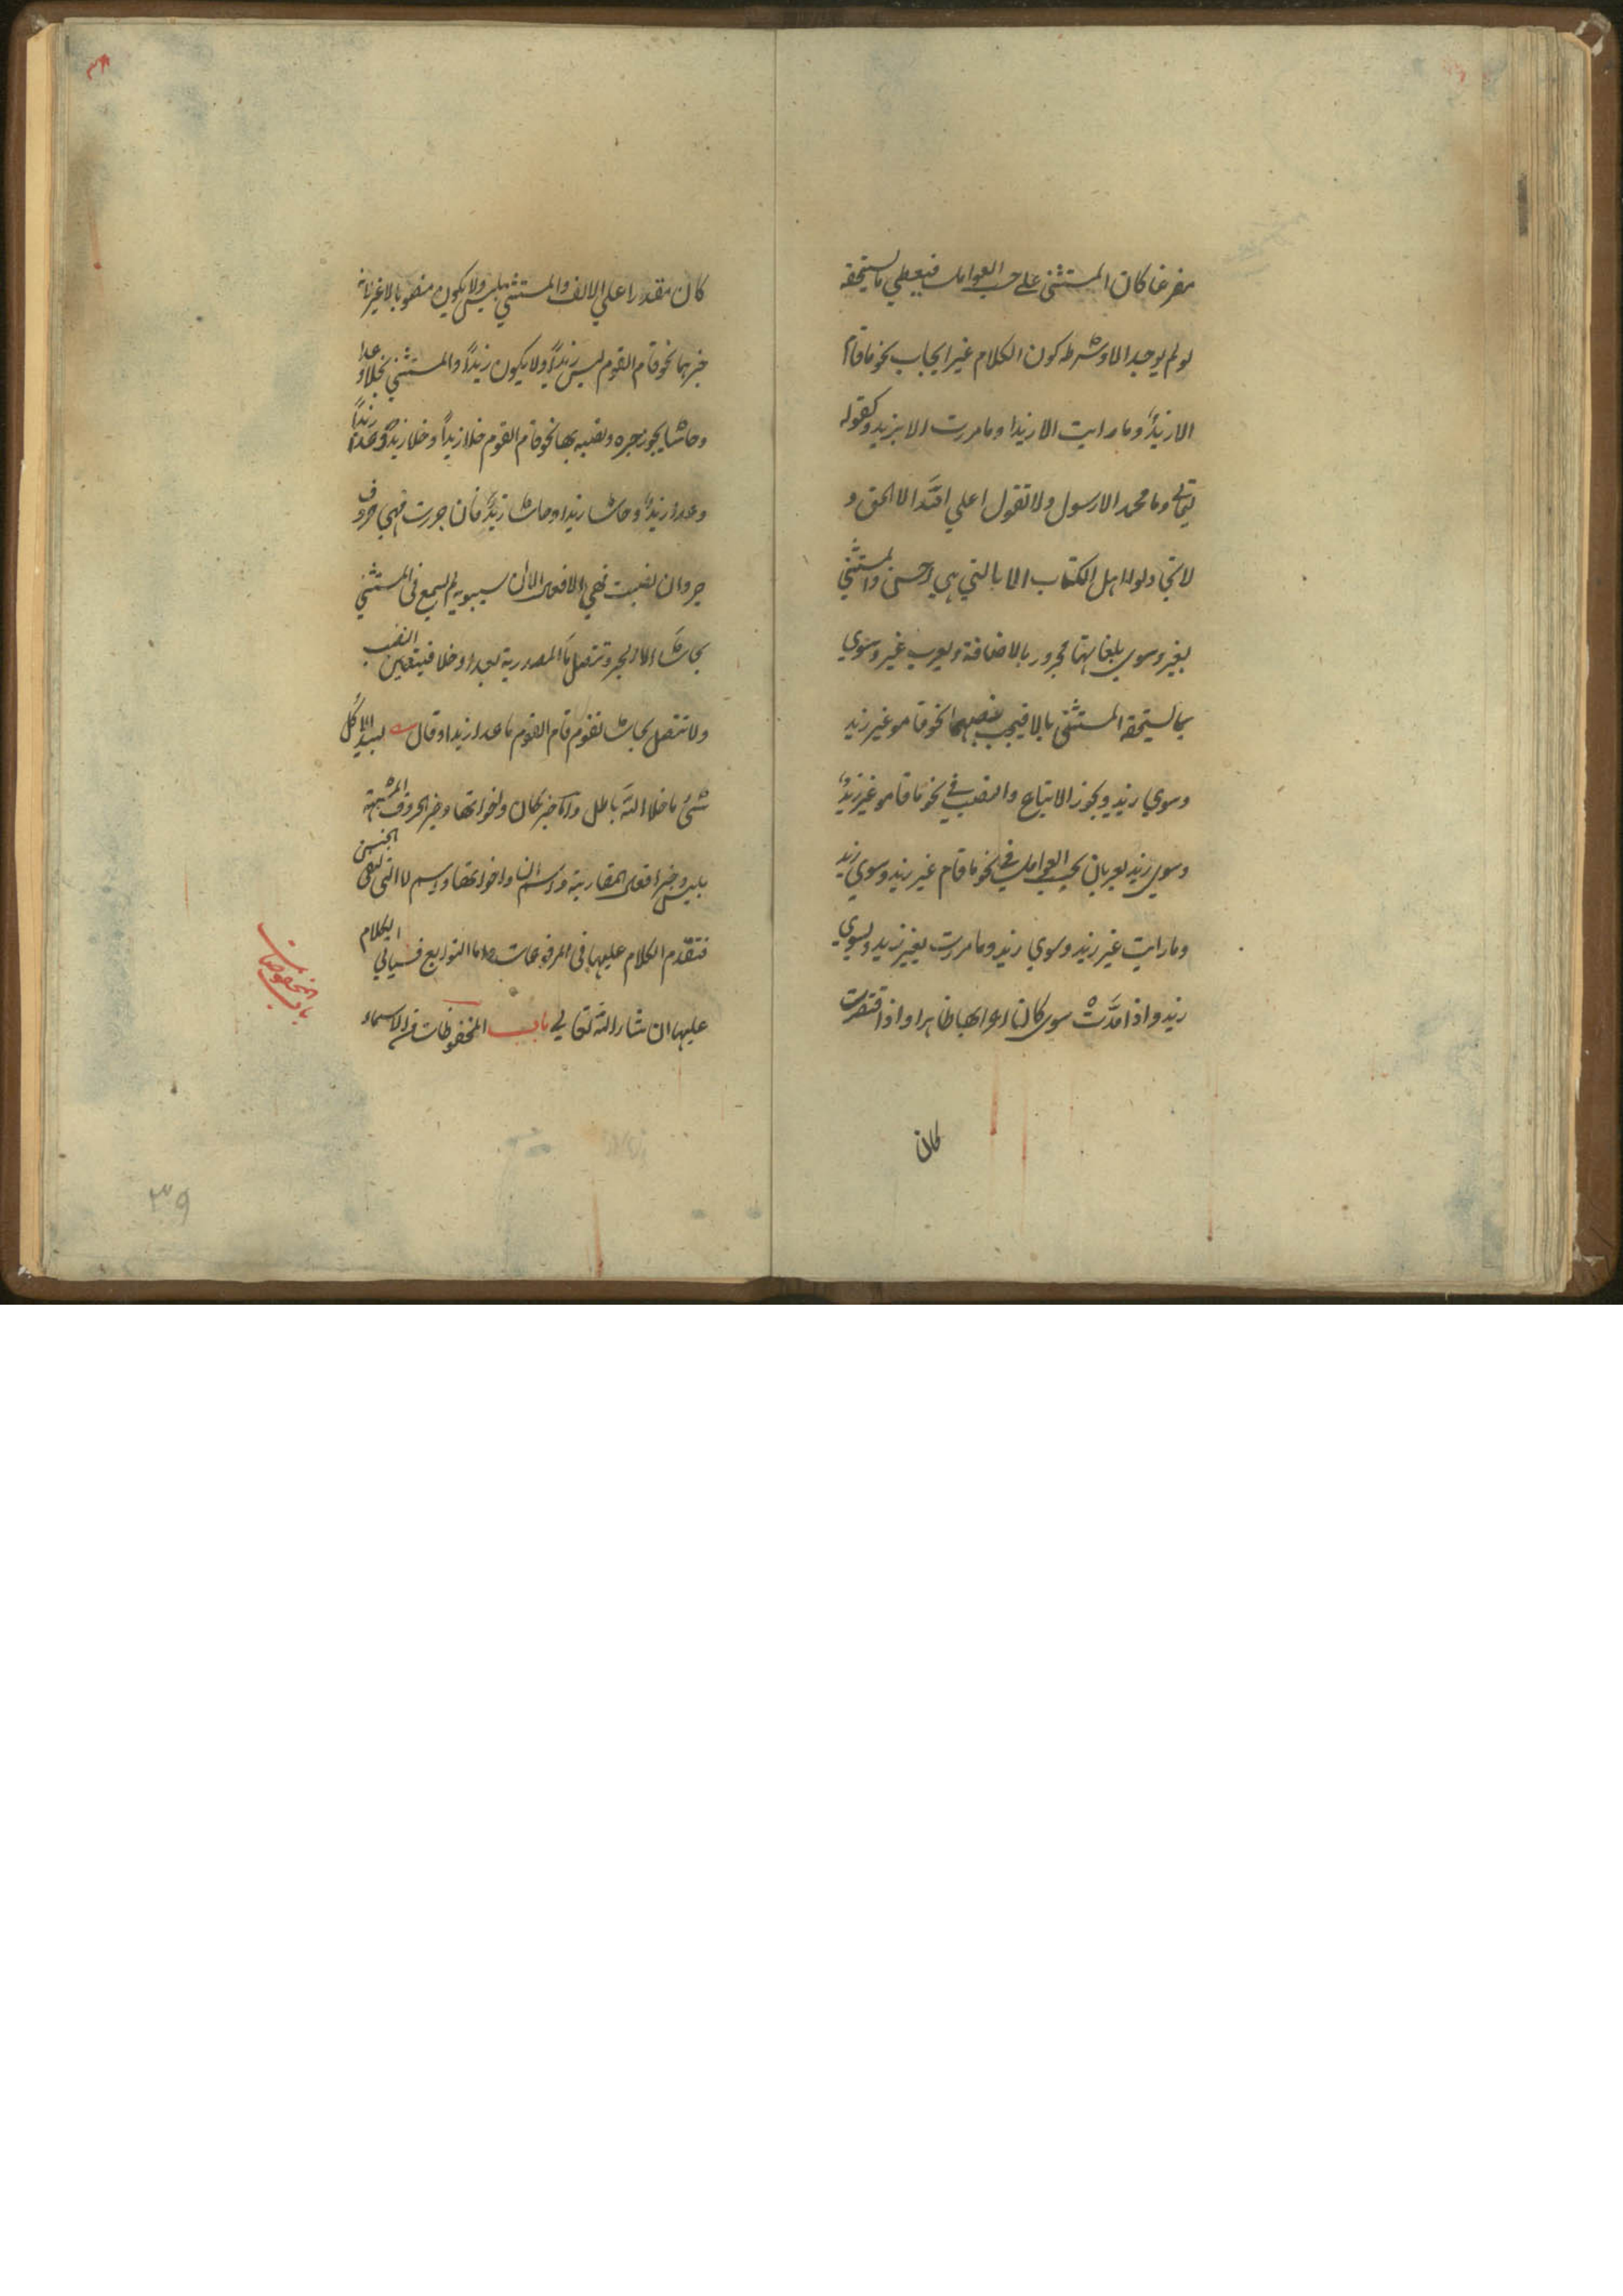 مفرغا كان المستثنى على حسب العوامل فيعطي ما يستحقه
لو لم يوجد الا وشرطه كون الكلام غير ايجاب نحو ما قام
الا زيدٌ وما رايت الا زيدا وما مررت الا بزيد وكقوله
تعالى وما محمد الا رسول ولا تقولوا على الله الا الحق و
لا تجادلوا اهل الكتاب الا بالتي هي احسن والمستثنى
بغير وسوى بلغاتها مجرور بالاضافة ويعرب غير وسوى
بما يستحقه المستثنى بالا فيجب نصبهما نحو قاموا غير زيد
وسوى زيد ويجوز الاتباع والنصب في نحو ما قاموا غير زيدٍ
وسوى زيد يعربان بحسب العوامل في نحو ما قام غير زيد وسوى زيد
وما رايت غير زيد وسوى زيد وما مررت بغير زيد وبسوى
زيد واذا مدَّت سوى كان اعرابها ظاهرا واذا قصرت
كان
كان مقدرا على الالف والمستثنى بليس ولا يكون منصوب لا غير لانه
خبرهما نحو قام القوم ليس زيداً ولا يكون زيداً والمستثنى بخلا وعدا
وحاشا يجوز جره ونصبه بها نحو قام القوم خلا زيداً وخلا زيدٍ وعدا زيداً
وعدا زيدٍ وحاشا زيدا وحاشا زيدٍ فان جررت فهي حروف
جر وان نصبت فهي افعال الا ان سيبويه لم يسمع في المستثنى
بحاشا الا الجر وتتصل ما المصدرية بعدا وخلا فيتعين النصب
ولا تتصل بحاشا تقول قام القوم ما عدا زيدا وقال لبيد الا كل
شيء ما خلا الله باطل واما خبر كان واخواتها وخبر الحروف المشبهة
بليس وخبر افعال المقاربة واسم ان واخواتها واسم لا التي لنفي الجنس
فتقدم الكلام عليها في المرفوعات واما التوابع فسياتي الكلام
عليها ان شاء الله تعالى باب المخفوضات من الاسماء
باب المخفوضات
٣٩